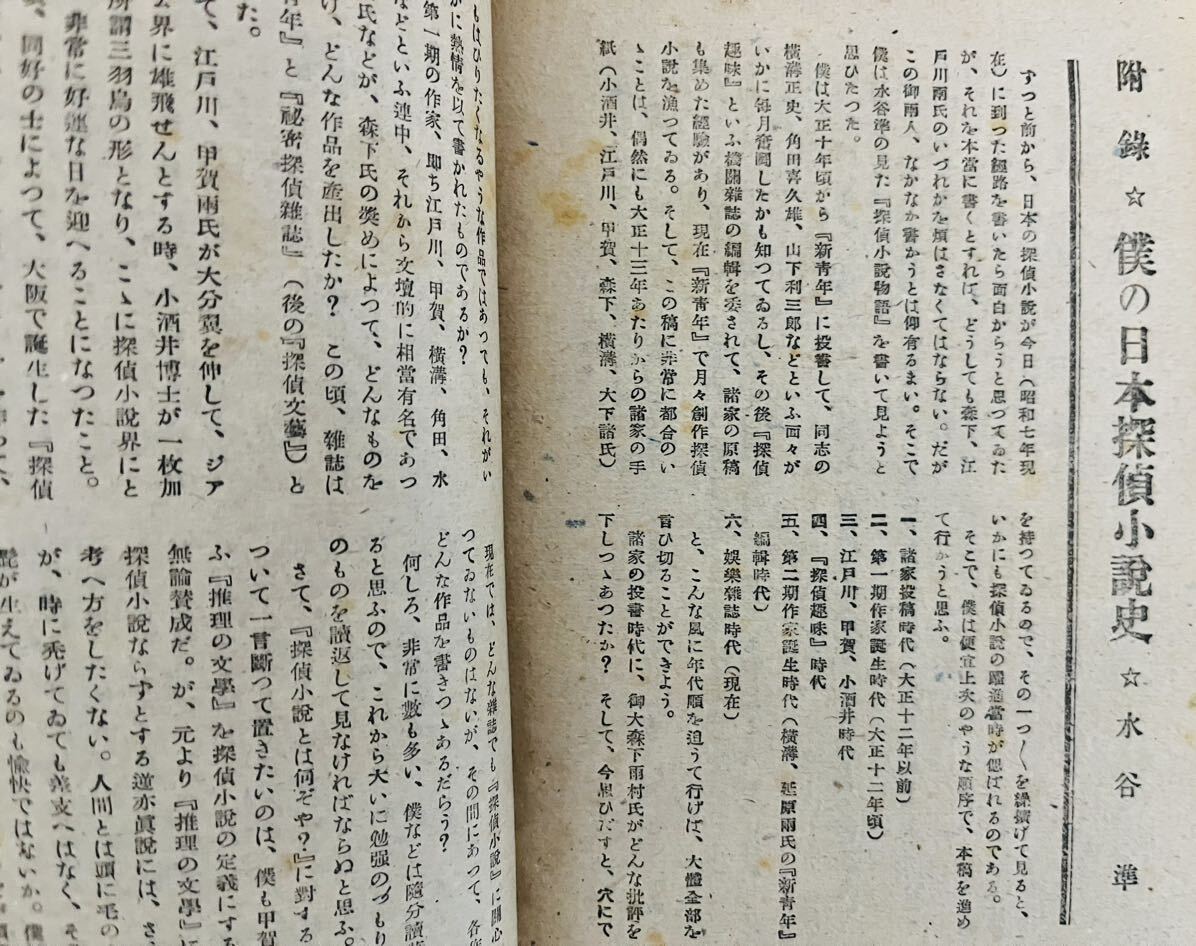 附錄☆僕の日本探偵小説史☆水谷準
ずつと前から、日本の探偵小說が今日(昭和七年現
在)に到つた經路を書いたら面白からうと思つてゐた
が、それを本當に書くとすれば、どうしても森下、江
戸川兩氏のいづれかを煩はさなくてはならない。だが
この御兩人、なかなか書かうとは仰有るまい。そこで
僕は水谷準の見た『探偵小說物語』を書いて見ようと
思ひたつた。
僕は大正十年頃から『新青年』に投書して、同志の
橫溝正史、角田喜久雄、山下利三郎などといふ面々が
いかに每月奮鬪したかも知つてゐるし、その後『探偵
趣味』といふ機關雜誌の編輯を委されて、諸家の原稿
も集めた經驗があり、現在『新青年』で月々創作探偵
小說を漁つてゐる。そして、この稿に非常に都合のい
ゝことは、偶然にも大正十三年あたりからの諸家の手
紙(小酒井、江戸川、甲賀、森下、橫溝、大下諸氏)
を持つてゐるので、その一つ〱を繰擴げて見ると、
いかにも探偵小說の躍進當時が偲ばれるのである。
そこで、僕は便宜上次のやうな順序で、本稿を進め
て行かうと思ふ。
一、諸家投稿時代(大正十二年以前)
二、第一期作家誕生時代(大正十二年頃)
三、江戸川、甲賀、小酒井時代
四、『探偵趣味』時代
五、第二期作家誕生時代(橫溝、延原兩氏の『新青年』
編輯時代)
六、娛樂雜誌時代(現在)
と、こんな風に年代順を追うて行けば、大體全部を
言ひ切ることができよう。
諸家の投書時代に、御大森下雨村氏がどんな批評を
下しつゝあつたか? そして、今思ひだすと、穴にで
もはひりたくなるやうな作品ではあつても、それがい
かに熱情を以て書かれたものであるか?
第一期の作家、即ち江戸川、甲賀、橫溝、角田、水
などといふ連中、それから文壇的に相當有名であつ
氏などが、森下氏の奬めによつて、どんなものを
け、どんな作品を產出したか? この頃、雜誌は
年』と『祕密探偵雜誌』(後の『探偵文藝』)と
た。
て、江戸川、甲賀兩氏が大分翼を伸して、ジア
界に雄飛せんとする時、小酒井博士が一枚加
所謂三羽烏の形となり、こゝに探偵小說界にと
非常に好運な日を迎へることになつたこと。
同好の士によつて、大阪で誕生した『探偵
現在では、どんな雜誌でも『探偵小說』に關心
つてゐないものはないが、その間にあつて、各
どんな作品を書きつゝあるだらう?
何しろ、非常に數も多い、僕などは隨分讀
ると思ふので、これから大いに勉强のつもり
のものを讀返して見なければならぬと思ふ。
さて、『探偵小說とは何ぞや?』に對する
ついて一言斷つて置きたいのは、僕も甲賀
ふ『推理の文學』を探偵小說の定義にする
無論賛成だ。が、元より『推理の文學』に
探偵小說ならずとする逆亦眞說には、さ
考へ方をしたくない。人間とは頭に毛の
が、時に禿げてゐても差支へはなく、そ
髭が生えてゐるのも愉快ではないか。僕